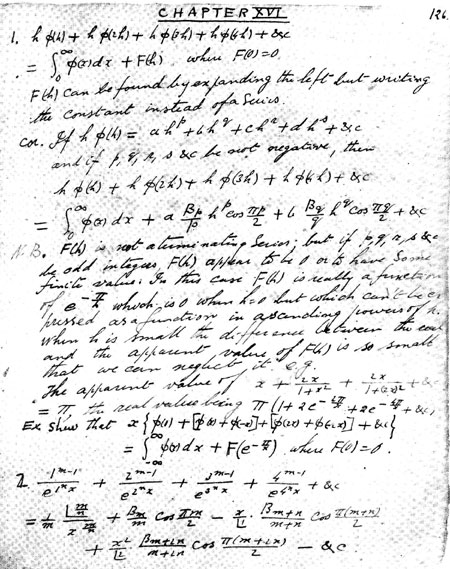 CHAPTER XVI 126
1. h φ(h) + h φ(2h) + h φ(3h) + h φ(4h) + &c
= ∫₀^∞ φ(x) dx + F(h), where F(0) = 0.
F(h) can be found by expanding the left but writing
the constant instead of a series.
Cor. If h φ(h) = a h^p + b h^q + c h^r + d h^s + &c
and if p, q, r, s &c be not negative, then
h φ(h) + h φ(2h) + h φ(3h) + h φ(4h) + &c
= ∫₀^∞ φ(x) dx + a B_p/p h^p cos πp/2 + b B_q/q h^q cos πq/2 + &c
N.B. F(h) is not a terminating series; but if p, q, r, s &c
be odd integers, F(h) appear to be 0 or to have some
finite value. In this case F(h) is really a function
of e^{-π/h} which is 0 when h=0 but which can't be ex
pressed as a function in ascending powers of h.
When h is small the difference between the
and the apparent value of F(h) is so small
that we can neglect it e.g.
The apparent value of x + 2x/(1+x²) + 2x/(1+(2x)²) + &c
= π, the real value being π(1 + 2e^{-2π/x} + 2e^{-4π/x} + &c)
Ex. Show that x{φ(0) + [φ(x) + φ(-x)] + [φ(2x) + φ(-2x)] + &c}
= ∫_{-∞}^∞ φ(x) dx + F(e^{-π/x}) where F(0) = 0.
2. 1^{m-1}/e^{1^n x} + 2^{m-1}/e^{2^n x} + 3^{m-1}/e^{3^n x} + 4^{m-1}/e^{4^n x} + &c
= 1/m |m/n / x^{m/n} + B_m/m cos πm/2 − x/|1 · B_{m+n}/(m+n) cos π(m+n)/2
+ x²/|2 · B_{m+2n}/(m+2n) cos π(m+2n)/2 − &c